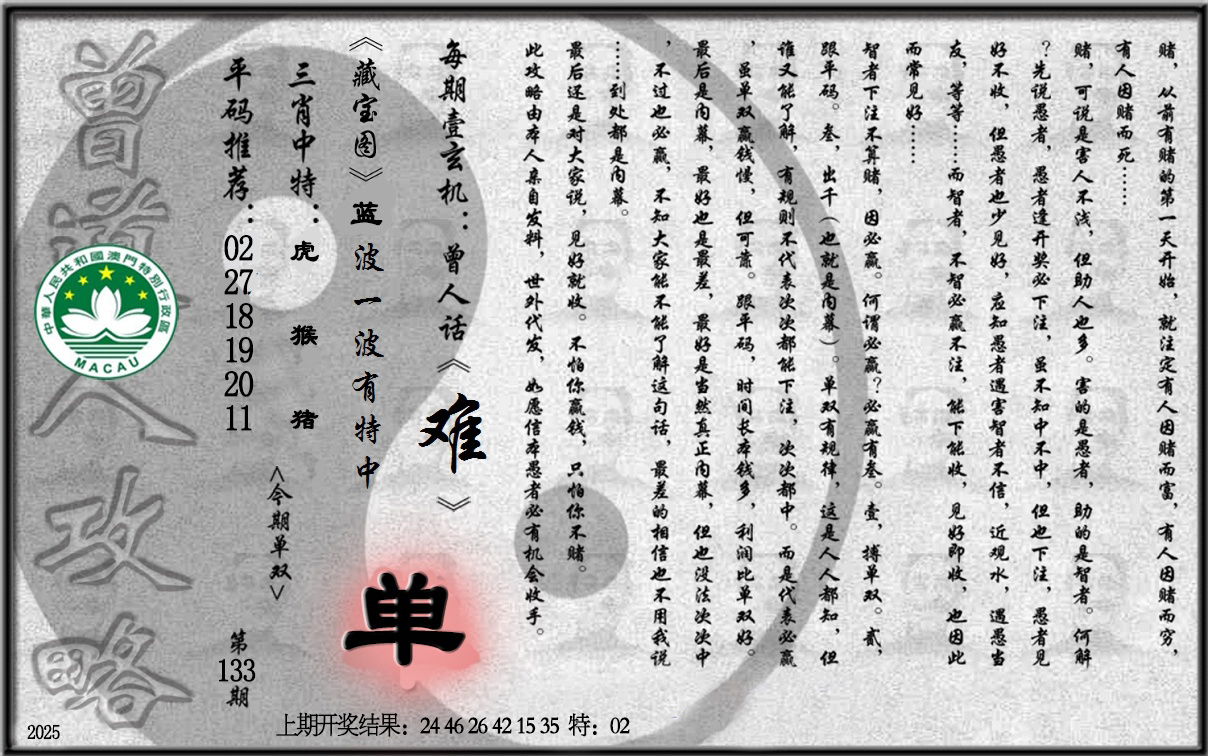 赌，从前有赌的第一天开始，就注定有人因赌而富，有人因赌而穷，
有人因赌而死……
赌，可说是害人不浅，但助人也多。害的是愚者，助的是智者。何解
？先说愚者，愚者逢开奖必下注，虽不知中不中，但也下注，愚者见
好不收，但愚者也少见好，应知愚者遇害智者不信，近观水，遇愚当
友，等等……而智者，不智必赢不注，能下能收，见好即收，也因此
而常见好……
智者下注不算赌，因必赢。何谓必赢？必赢有叁。壹，搏单双。贰，
跟平码。叁，出千（也就是内幕）。单双有规律，这是人人都知，但
谁又能了解，有规则不代表次次都能下注，次次都中。而是代表必赢
，虽单双赢钱慢，但可靠。跟平码，时间长本钱多，利润比单双好。
最后是内幕，最好也是最差，最好是当然真正内幕，但也没法次次中
，不过也必赢，不知大家能不能了解这句话，最差的相信也不用我说
……到处都是内幕。
最后还是对大家说，见好就收。不怕你赢钱，只怕你不赌。
此攻略由本人亲自发料，世外代发，如愿信本愚者必有机会收手。
每期壹玄机：曾人话《难》
《藏宝图》蓝波一波有特中
单
三肖中特：虎 猴 猪
<今期单双>
平码推荐：02 27 18 19 20 11
第133期
曾道人攻略
中華人民共和國澳門特別行政區
MACAU
2025
上期开奖结果：24 46 26 42 15 35 特：02